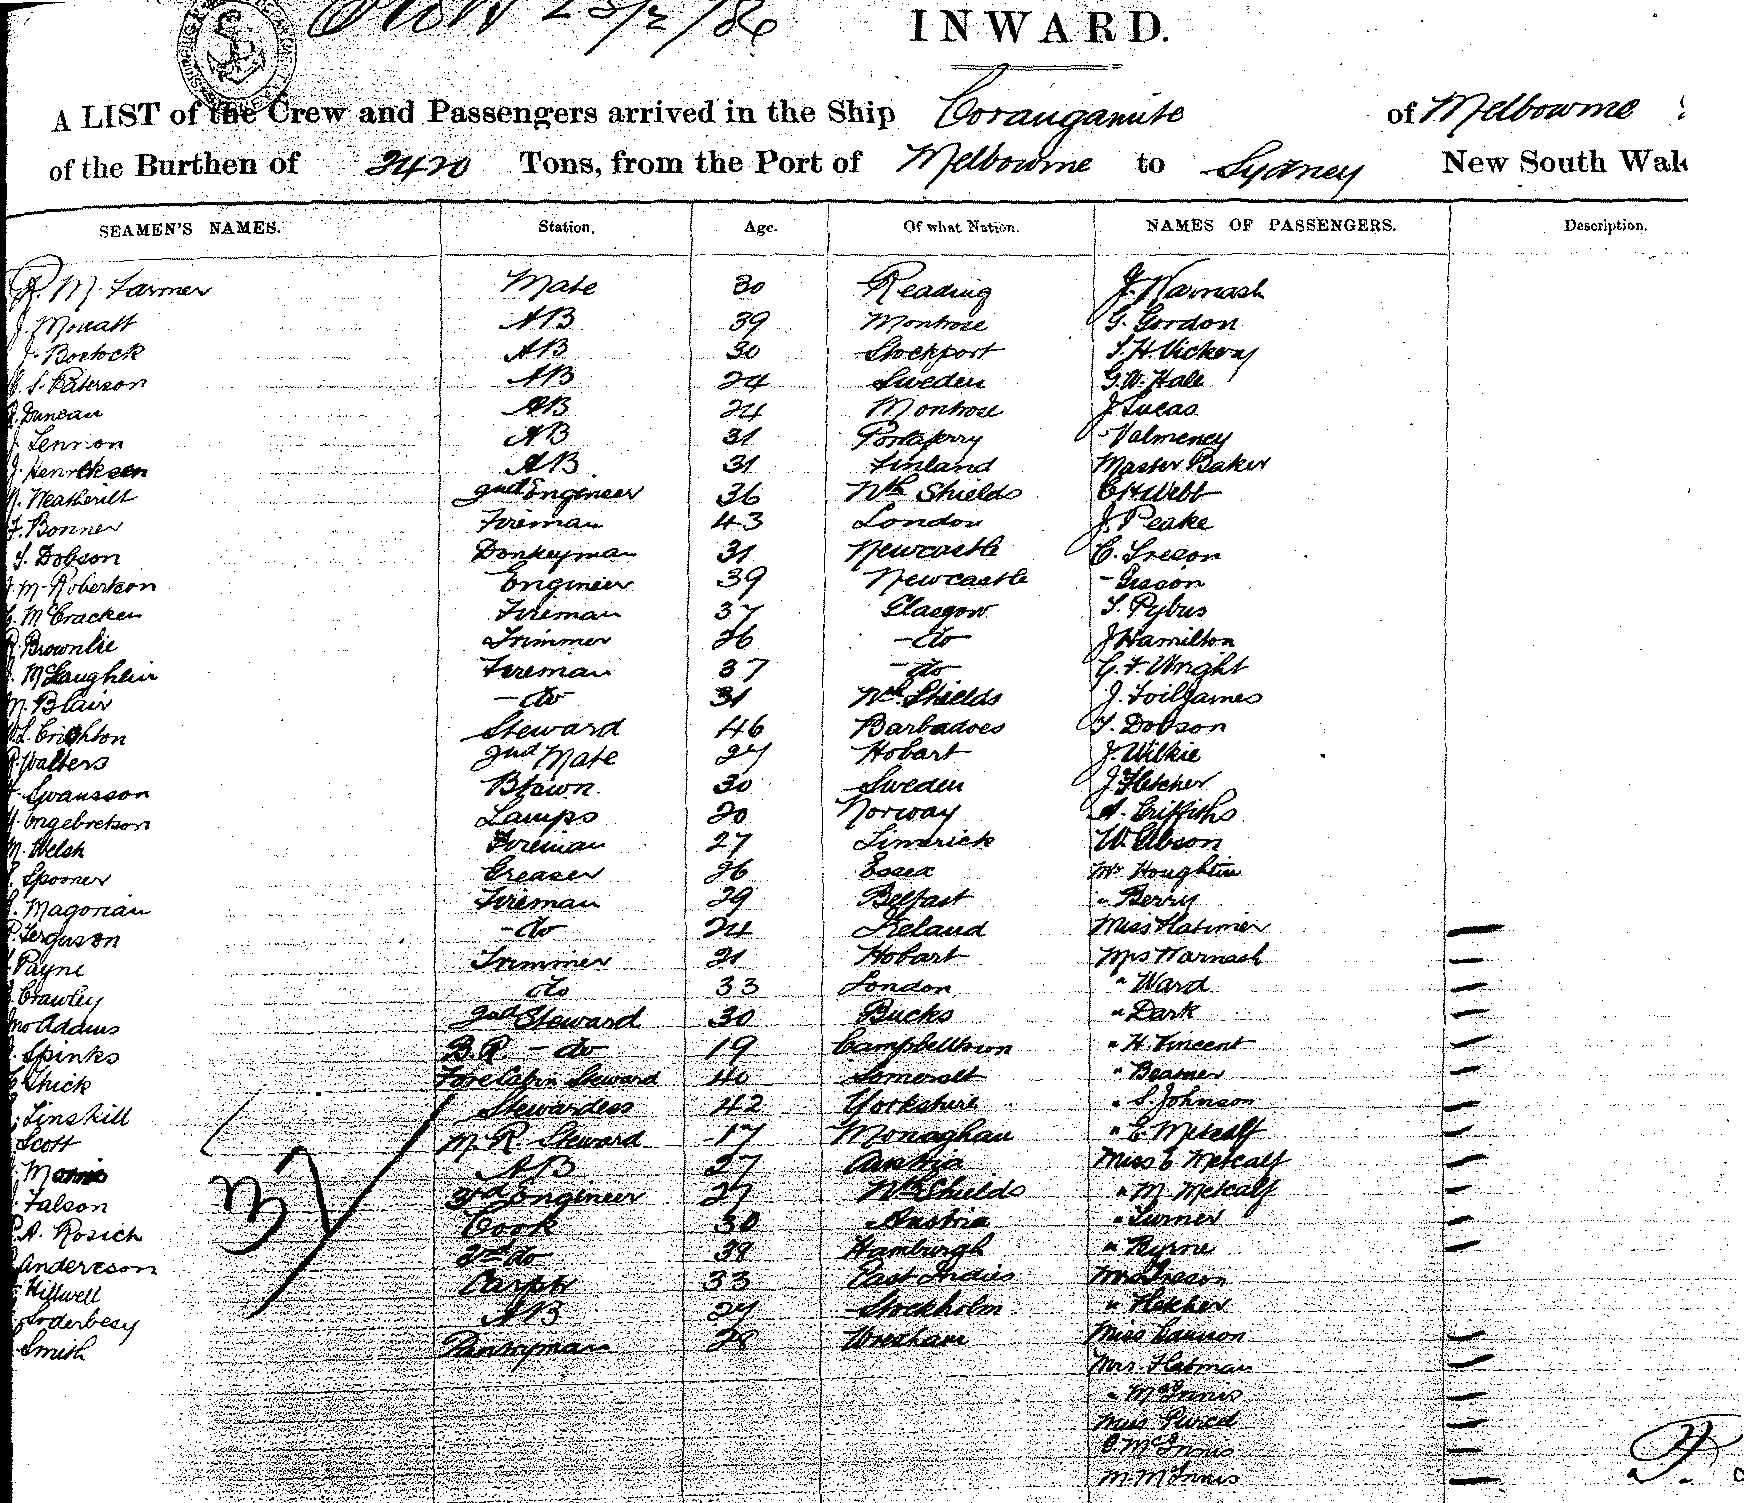 23/2/86
INWARD.
A LIST of the Crew and Passengers arrived in the Ship Corangamite of Melbourne
of the Burthen of 2420 Tons, from the Port of Melbourne to Sydney New South Wal
SEAMEN'S NAMES. Station. Age. Of what Nation. NAMES OF PASSENGERS. Description.
R. M. Farmer Mate 30 Reading J. Warnash
J. Mouatt AB 39 Montrose G. Gordon
J. Bostock AB 30 Stockport S. H. Vickery
S. Paterson AB 24 Sweden G. W. Hale
Duncan AB 24 Montrose J Lucas
Lennon AB 31 Portaferry - Valmeney
Henricksen AB 31 Finland Master Baker
Weatherilt 2nd Engineer 36 Nth Shields C H Webb
F. Bonner Fireman 43 London J. Peake
T. Dobson Donkeyman 31 Newcastle C. Treson
M. Robertson Engineer 39 Newcastle -
McCracken Fireman 37 Glasgow S. Pybus
R. Brownlie Trimmer 26 - do J Hamilton
McLaughlin Fireman 37 - do G. F. Wright
M. Blair - do 31 Nth. Shields J.
L. Crighton Steward 46 Barbadoes T. Dobson
R. Walters 2nd Mate 27 Hobart J. Wilkie
Swansson Btswn. 30 Sweden J Fletcher
Engebretson Lamps 20 Norway A. Griffiths
M. Welsh Fireman 27 Limerick W. Abson
Spooner Greaser 26 Essex Mr Houghtin
Magorian Fireman 29 Belfast " Berry
Ferguson - do 24 Ireland Miss Flatimer
Payne Trimmer 21 Hobart Mrs Warnash
Crawley do 33 London " Ward
Jno Adams 2nd Steward 30 Bucks " Dark
Spinks B.R. - do 19 Campbelltown " H. Vincent
Shick Fore Cabin Steward 40 Somerset " Beamer
Linskill Stewardess 42 Yorkshire " S. Johnson
Scott M. R. Steward 17 Monaghan " E Metcalf
Morris AB 27 Austria Miss E Metcalf
Falson 3rd Engineer 27 Nth Shields " M. Metcalf
A. Rosich Cook 30 Austria " Turner
Anderson 2nd do 39 Hamburgh " Byrne
Hillwell Carptr 33 East Indies Mr Treson
Soderbesy AB 27 Stockholm " Fletcher
Smith Pantryman 28 Wrexham Miss Cannon
Mrs. Flatman
" McInnis
Miss
C McInnis
M McInnis